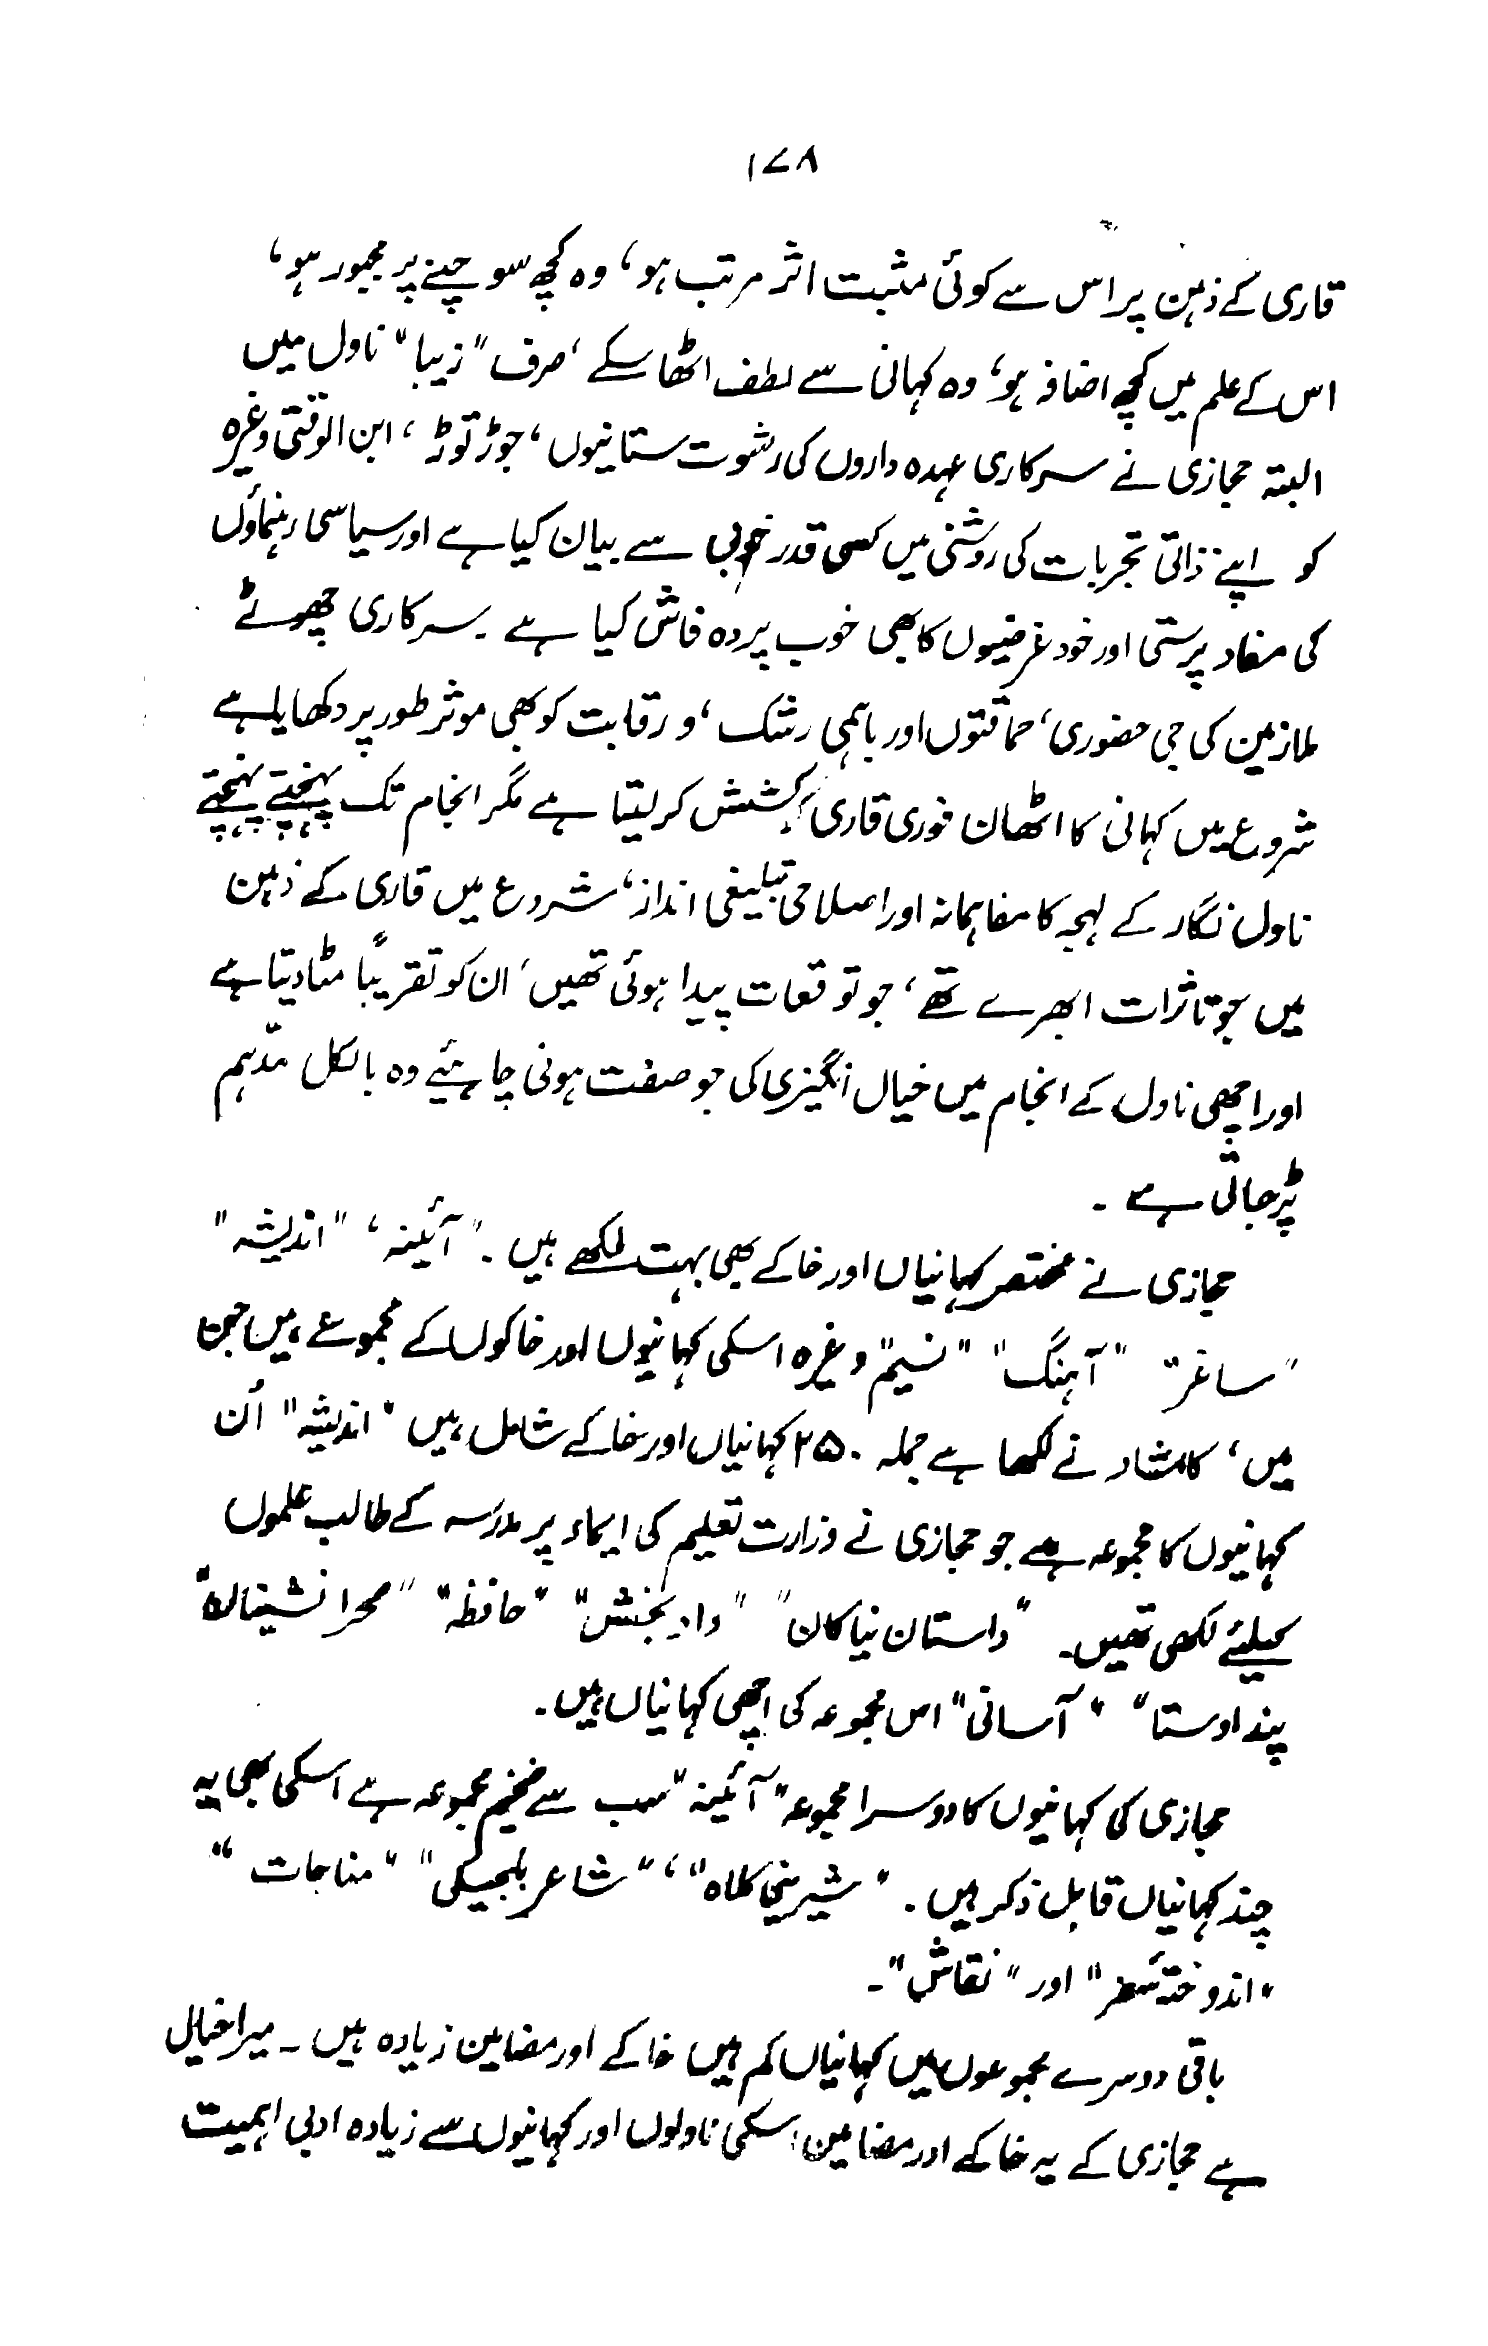 ۱۷۸
قاری کے ذہن پر اس سے کوئی مثبت اثر مرتب ہو، وہ کچھ سوچنے پر مجبور ہو،
اس کے علم میں کچھ اضافہ ہو، وہ کہانی سے لطف اٹھا سکے، صرف "زیبا" ناول میں
البتہ حجازی نے سرکاری عہدہ داروں کی رشوت ستانیوں، جوڑ توڑ، ابن الوقتی وغیرہ
کو اپنے ذاتی تجربات کی روشنی میں کسی قدر خوبی سے بیان کیا ہے اور سیاسی رہنماؤں
کی مفاد پرستی اور خود غرضیوں کا بھی خوب پردہ فاش کیا ہے ۔ سرکاری چھوٹے
ملازمین کی جی حضوری، حماقتوں اور باہمی رشک، و رقابت کو بھی موثر طور پر دکھایا ہے
شروع میں کہانی کا اٹھان فوری قاری کشش کر لیتا ہے مگر انجام تک پہنچتے پہنچتے
ناول نگار کے لہجہ کا مفاہمانہ اور اصلاحی تبلیغی انداز، شروع میں قاری کے ذہن
میں جو تاثرات ابھرے تھے، جو توقعات پیدا ہوئی تھیں، ان کو تقریباً مٹا دیتا ہے
اور اچھی ناول کے انجام میں خیال انگیزی کی جو صفت ہونی چاہئیے وہ بالکل مدّہم
پڑ جاتی ہے ۔
حجازی نے مختصر کہانیاں اور خاکے بھی بہت لکھے ہیں ۔ "آئینہ، "اندیشہ"
"ساغر" "آہنگ" "نسیم" وغیرہ اسکی کہانیوں اور خاکوں کے مجموعے ہیں جن
میں، کامشاد نے لکھا ہے جملہ ۲۵۰ کہانیاں اور خاکے شامل ہیں "اندیشہ" اُن
کہانیوں کا مجموعہ ہے جو حجازی نے وزارت تعلیم کی ایماء پر مدرسہ کے طالب علموں
کیلئے لکھی تھیں۔ "داستان نیاکان" "دادبخش" "حافظہ" "صحرا نشینان"
پند اوستا" "آسانی" اس مجموعہ کی اچھی کہانیاں ہیں۔
حجازی کی کہانیوں کا دوسرا مجموعہ "آئینہ" سب سے ضخیم مجموعہ ہے اسکی بھی یہ
چند کہانیاں قابل ذکر ہیں ۔ "شیرینی کلاہ"، "شاعر بلجیکی" "مناجات"
"اندوختۂ سفر" اور "نقاش"۔
باقی دوسرے مجموعوں میں کہانیاں کم ہیں خاکے اور مضامین زیادہ ہیں ۔ میرا خیال
ہے حجازی کے یہ خاکے اور مضامین اسکی ناولوں اور کہانیوں سے زیادہ ادبی اہمیت